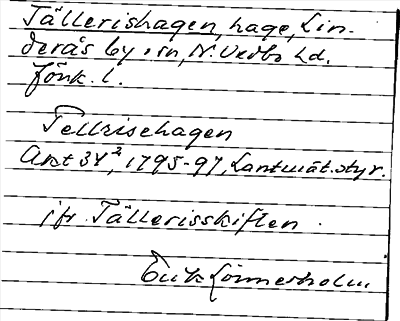 Tällerishagen, hage, Lin-
derås by, sn, N. Vedbo hd.
Jönk. l.
Tellrisehagen
Akt 34², 1795-97, Lantmät.styr.
jfr Tällerisskiften.
Erik Lönnerholm.